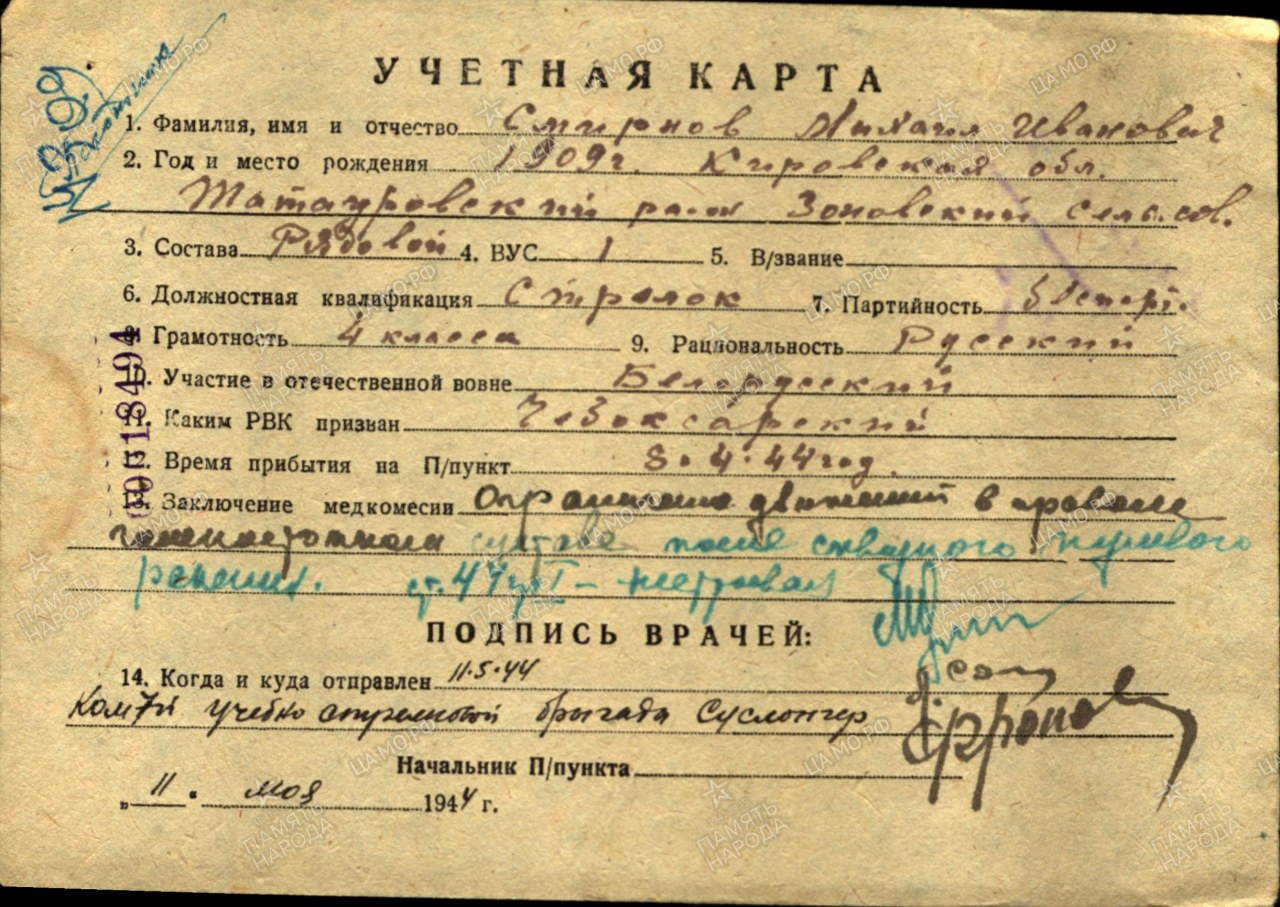 УЧЕТНАЯ КАРТА
1. Фамилия, имя и отчество Смирнов Михаил Иванович
2. Год и место рождения 1909г. Кировская обл.
Татауровский район Зоновский сель.сов.
3. Состава Рядовой 4. ВУС 1 5. В/звание
6. Должностная квалификация Стрелок 7. Партийность беспарт.
Грамотность 4 класса 9. Рациональность Русский
Участие в отечественной вовне Белорусский
11. Каким РВК призван Чебоксарский
12. Время прибытия на П/пункт 8.4.44год.
Заключение медкомесии Ограничение движений в правом
голеностопном суставе после сквозного пулевого
ранения. ст. 44
ПОДПИСЬ ВРАЧЕЙ:
14. Когда и куда отправлен 11.5.44
учебно стрелковой бригада Суслонгер
Начальник П/пункта
„11“ мая 1944 г.
ПАМЯТЬ НАРОДА
ЦАМО.РФ